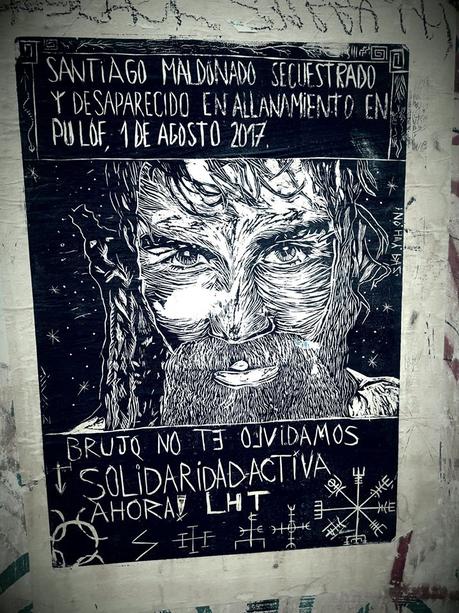 SANTIAGO MALDONADO SECUESTRADO
Y DESAPARECIDO EN ALLANAMIENTO EN
PU LOF, 1 DE AGOSTO 2017.
¡NO HAY
BRUJO NO TE OLVIDAMOS
SOLIDARIDAD ACTIVA
AHORA! LHT